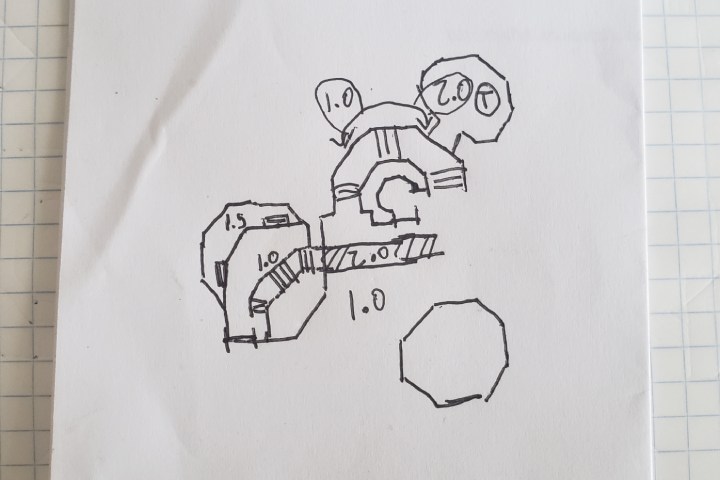 1.0
2.0
T
1.5
1.0
2.0
1.0